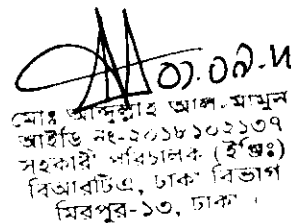 ০১.০৯.২
মোঃ আব্দুল্লাহ আল-মামুন
আইডি নং-২০১৮১০২১৩৭
সহকারী পরিচালক (ইঞ্জিঃ)
বিআরটিএ, ঢাকা বিভাগ
মিরপুর-১৩, ঢাকা।